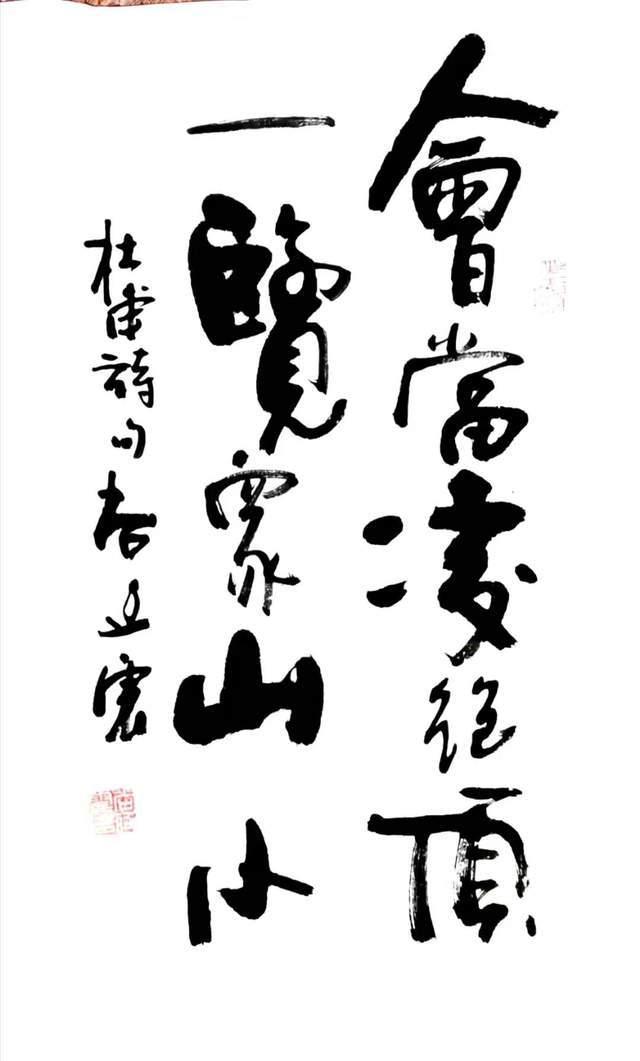 會當凌絕頂
一覽衆山小
杜甫詩句